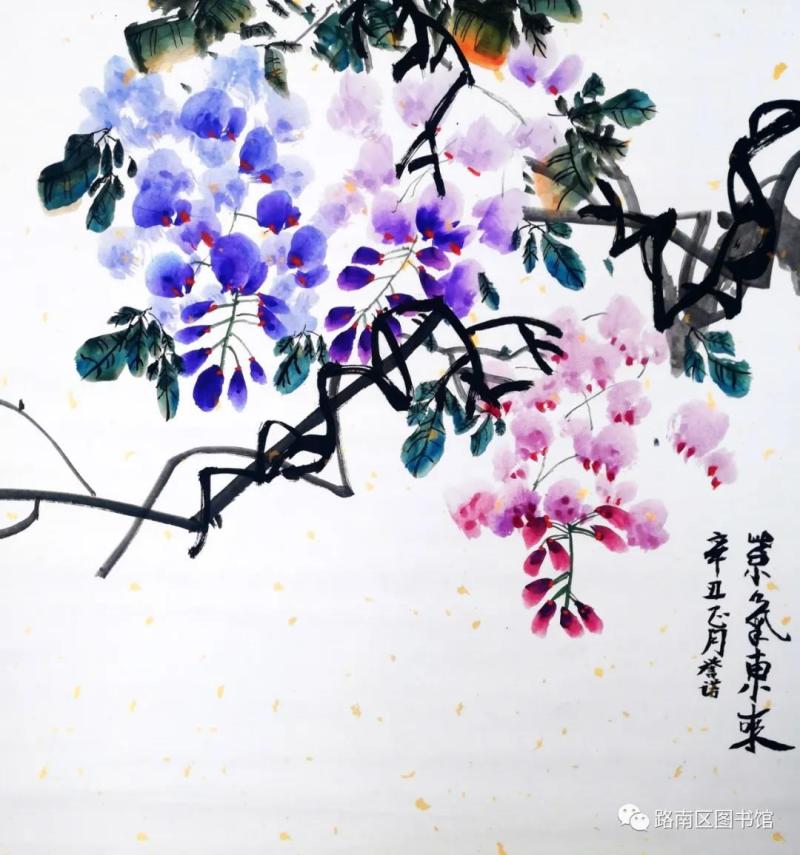 紫氣東來
辛丑正月誉诺
路南区图书馆